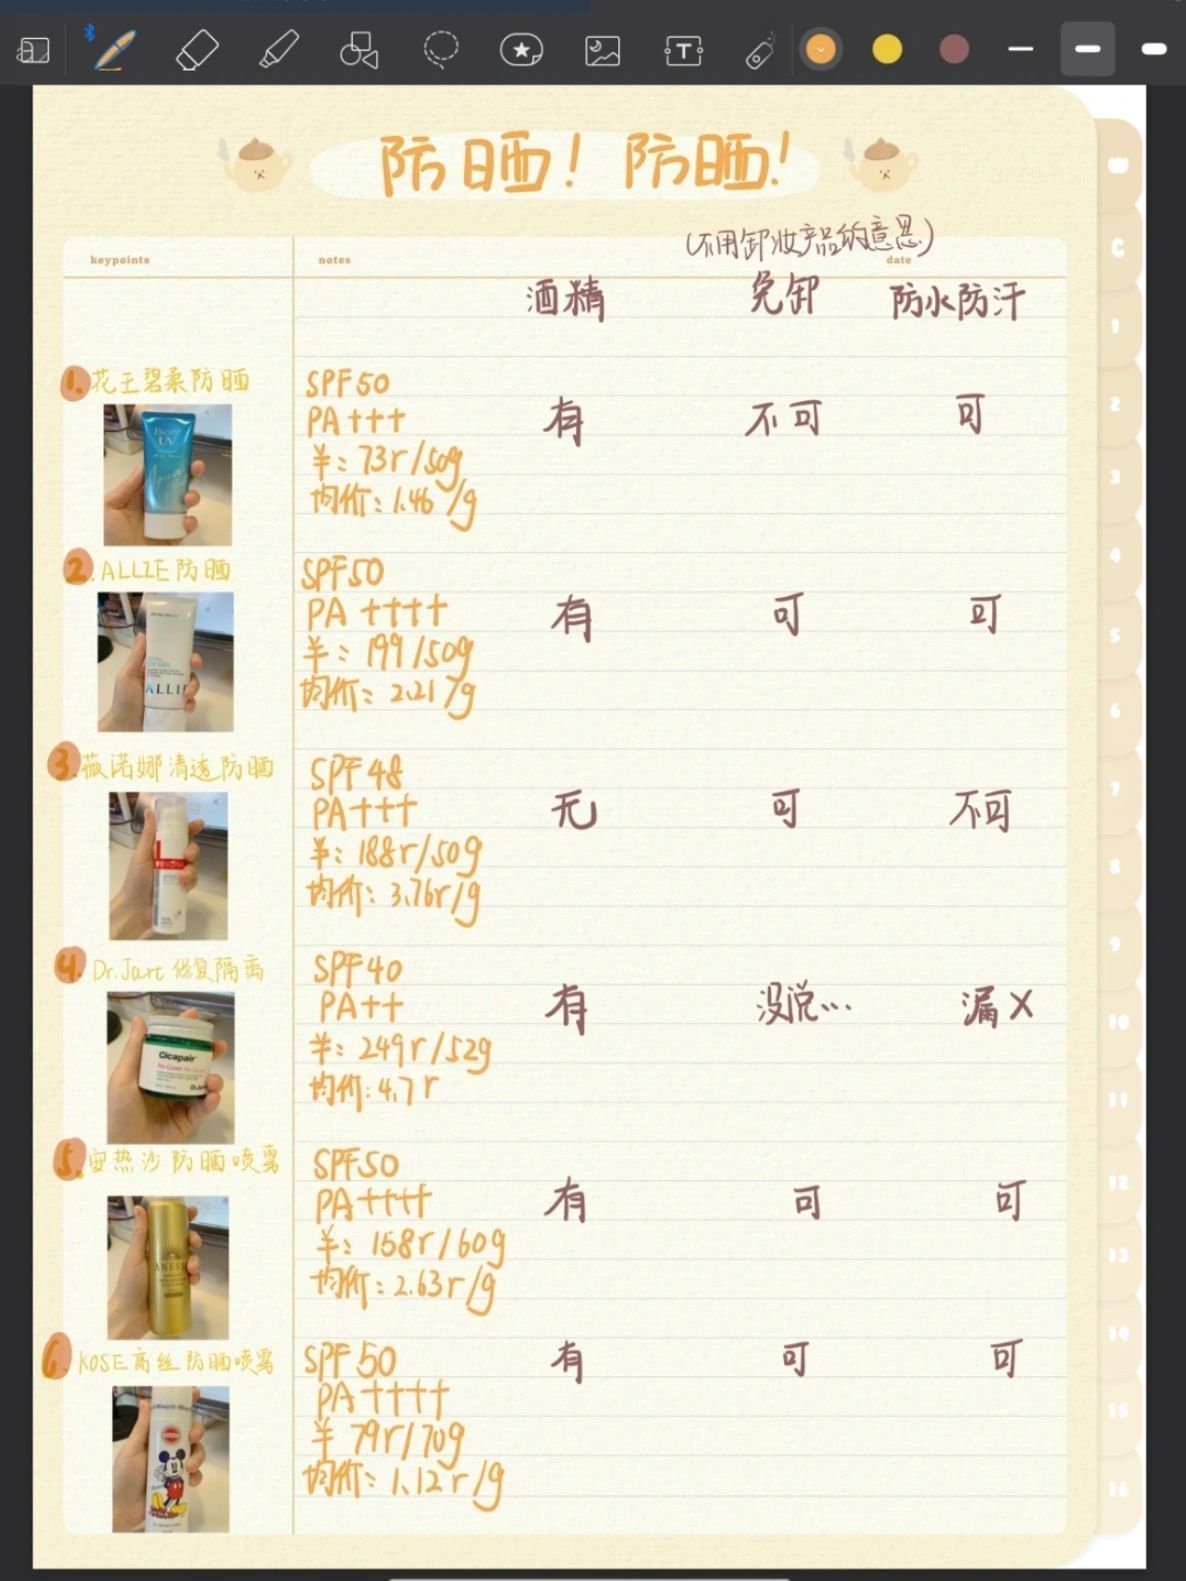 防晒！防晒！
(不用卸妆产品的意思)
keypoints
notes
date
酒精 免卸 防水防汗
1.花王碧柔防晒
SPF50
PA+++
¥：73r/50g
均价：1.46/g
有 不可 可
Bioré
UV
Aqua
2.ALLIE防晒
SPF50
PA++++
¥：199/50g
均价：2.21/g
有 可 可
UV GEL
ALLIE
3.薇诺娜清透防晒
SPF48
PA+++
¥：188r/50g
均价：3.76r/g
无 可 不可
WINONA
4.Dr.Jart修复隔离
SPF40
PA++
¥：249r/52g
均价：4.7r
有 没说… 漏X
Cicapair
Re-Cover
Dr.Jart
5.安热沙防晒喷雾
SPF50
PA++++
¥：158r/60g
均价：2.63r/g
有 可 可
ANESSA
6.KOSE高丝防晒喷雾
SPF50
PA++++
¥79r/70g
均价：1.12r/g
有 可 可
C
1
2
3
4
5
6
7
8
9
10
11
12
13
14
15
16